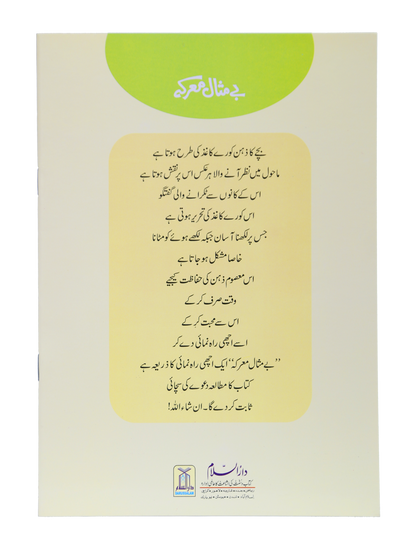 بے مثال معرکہ
بچے کا ذہن کورے کاغذ کی طرح ہوتا ہے
ماحول میں نظر آنے والا ہر عکس اس پر نقش ہوتا ہے
اس کے کانوں سے ٹکرانے والی گفتگو
اس کورے کاغذ کی تحریر ہوتی ہے
جس پر لکھنا آسان جبکہ لکھے ہوئے کو مٹانا
خاصا مشکل ہو جاتا ہے
اس معصوم ذہن کی حفاظت کیجیے
وقت صرف کر کے
اس سے محبت کر کے
اسے اچھی راہ نمائی دے کر
’’بے مثال معرکہ‘‘ ایک اچھی راہ نمائی کا ذریعہ ہے
کتاب کا مطالعہ دعوے کی سچائی
ثابت کر دے گا۔ ان شاء اللہ!
دارالسلام
کتاب و سنت کی اشاعت کا عالمی ادارہ